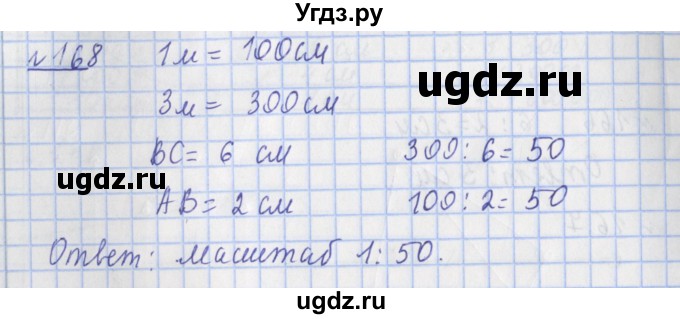 Угдз.ру
№168 1м = 100см
ugdz.ru
3м = 300см
ВС = 6 см 300 : 6 = 50
ugdz.ru
АВ = 2 см 100 : 2 = 50
ugdz.ru
Ответ: масштаб 1 : 50.
ugdz.ru